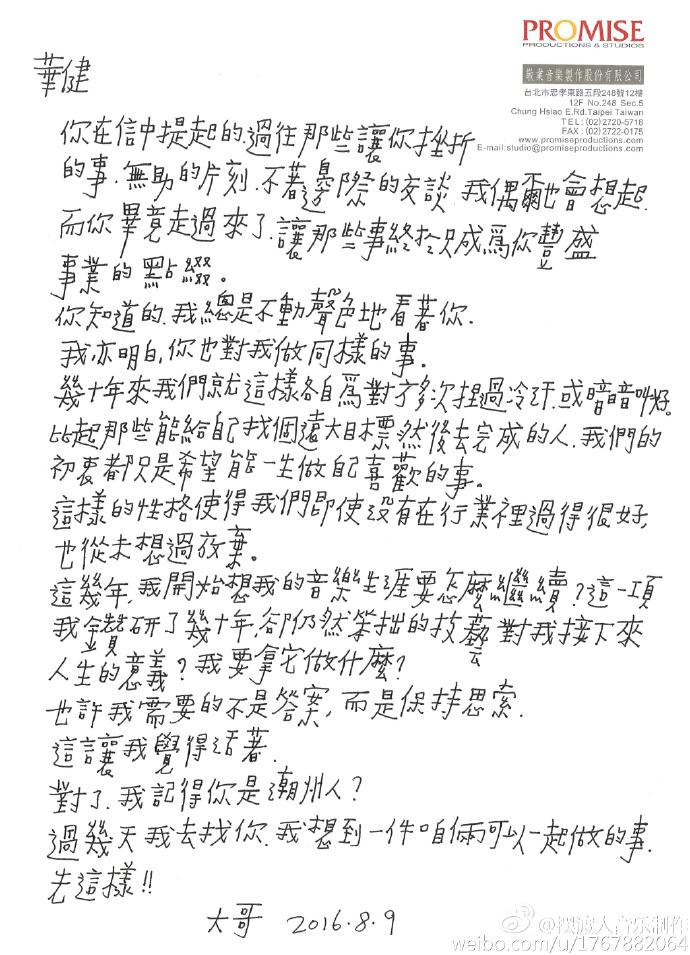 PROMISE
PRODUCTIONS & STUDIOS
業音樂製作股份有限公司
台北市忠孝東路五段248號12樓
12F No.248 Sec.5
Chung Hsiao E.Rd.Taipei Taiwan
TEL:(02)2720-5718
FAX:(02)2722-0175
www.promiseproductions.com
E-mail:studio@promiseproductions.com
華健
你在信中提起的過往那些讓你挫折
的事.無助的片刻.不著邊際的交談.我偶爾也會想起.
而你畢竟走過來了.讓那些事終於只成為你豐盛
事業的點綴。
你知道的.我總是不動聲色地看著你.
我亦明白,你也對我做同樣的事。
幾十年來我們就這樣各自為對方多次捏過冷汗.或暗暗叫好。
比起那些能給自己找個遠大目標然後去完成的人.我們的
初衷都只是希望能一生做自己喜歡的事。
這樣的性格使得我們即使沒有在行業裡過得很好,
也從未想過放棄。
這幾年,我開始想我的音樂生涯要怎麼繼續?這一項
我鑽研了幾十年,卻仍然笨拙的技藝對我接下來
人生的意義?我要拿它做什麼?
也許我需要的不是答案,而是保持思索.
這讓我覺得活著.
對了.我記得你是潮州人?
過幾天我去找你.我想到一件咱倆可以一起做的事.
先這樣!!
大哥 2016.8.9
@摆渡人音乐制作
weibo.com/u/1767882064